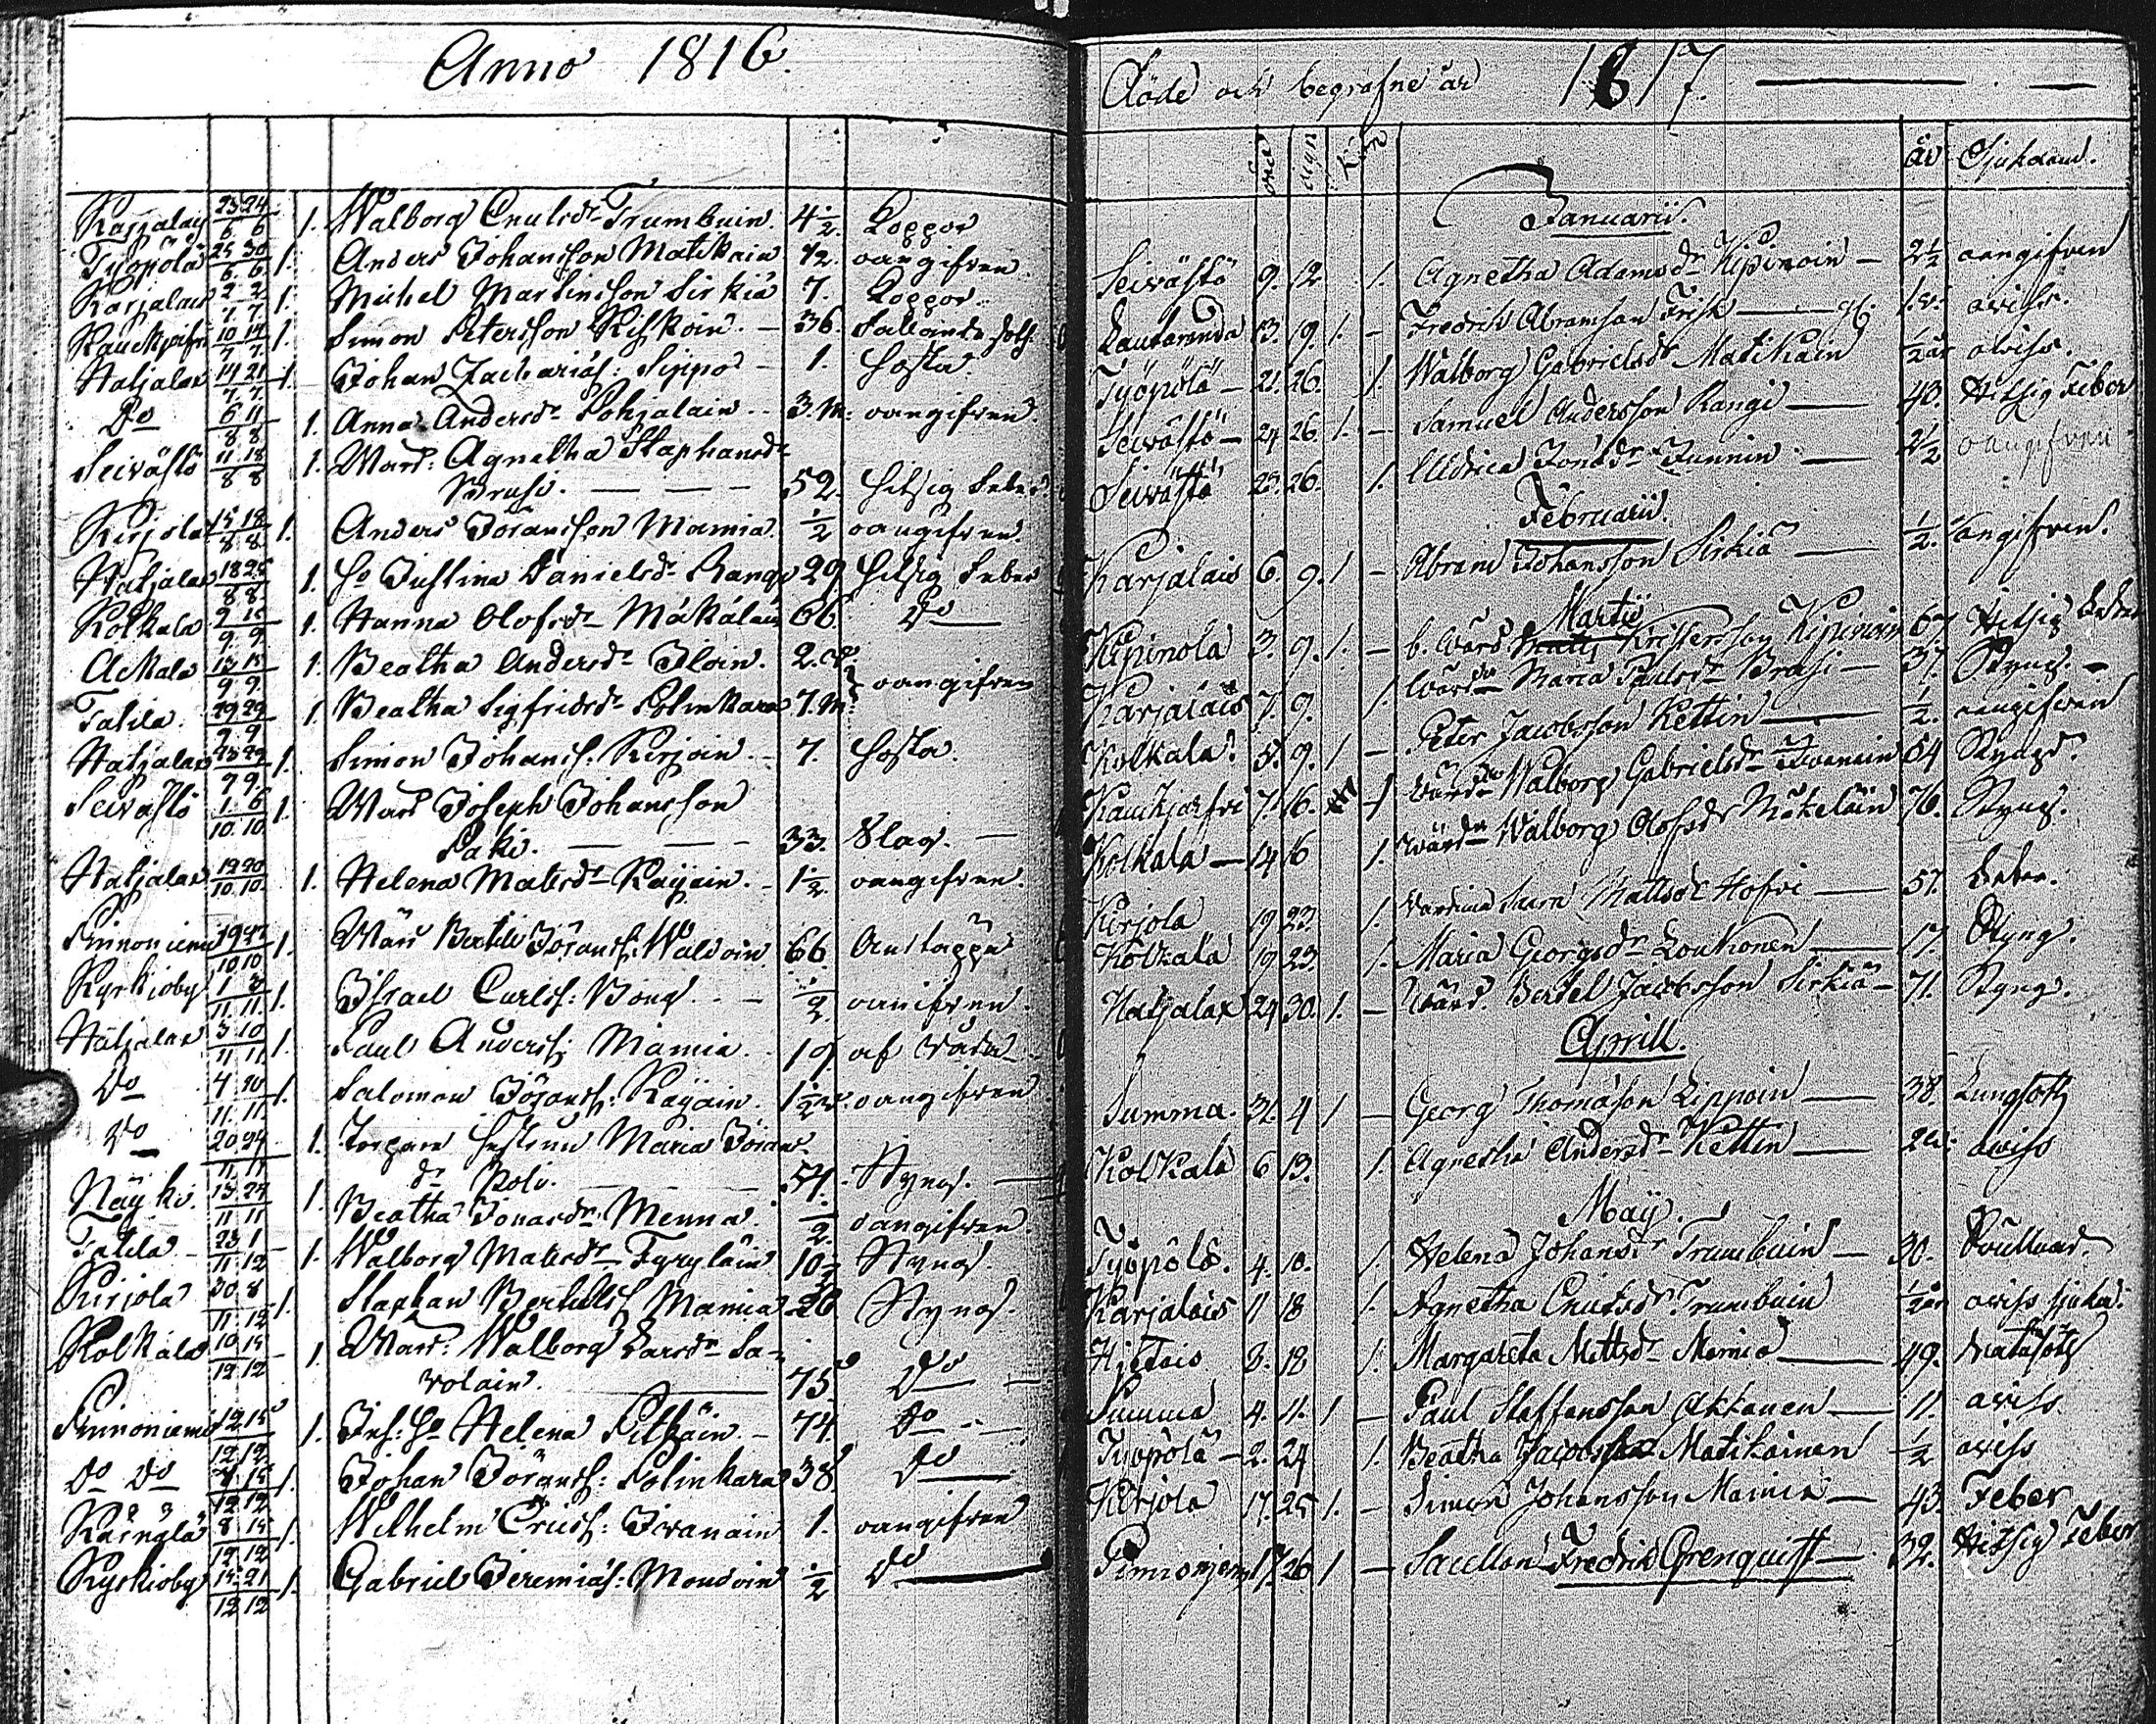 Anno 1816.
Karjalais 23/6 24/6 1. Walborg Cnutsdr Trumbuin. 4 1/2. Koppor
Tyopölä 25/6 30/6 1. Anders Johansson Matikain 1/2. oangifven.
Karjalais 2/7 2/7 1. Michel Martinsson Sirkiä 7. Koppor.
Kauckjerfvi 10/7 14/7 1. Simon Petersson Kiskoin. - 36.
Hatjalax 14/7 21/7 1. Johan Zachariäs: Sippo - 1. Hosta.
Do 6/8 11/8 1. Anna Andersdr Pohjalain - 3. m: oangifven.
Seivästö 11/8 18/8 1. Ward: Agnetha Staphansdr
Brusi. — — — 52. hitsig Feber.
Kirjola 15/8 18/8 1. Anders Jöransson Mamia. 1/2 oangifven.
Hatjalax 18/8 25/8 1. Ho Justina Danielsdr Rangi 29 hitsig Feber
Kolkala 9/9 15/9 1. Hanna Olofsdr Mäkäläin 66 Do
Ackala 13/9 15/9 1. Beatha Andersdr Iloin. 2. år.
Tatila. 29/9 29/9 1. Beatha Sigfridsdr Polinkara 7. m. } oangifven
Hatjalax 25/9 29/9 1. Simon Johans: Kirjoin. - 7. Hosta.
Seivästö 1/10 6/10 1. Ward Joseph Johansson
Paki. — — — 33. Slag. —
Hatjalax 19/10 20/10 1. Helena Matsdr Kayain. - 1 1/2. oangifven.
Pinnoniemi 19/10 27/10 1. Wärd Bertil Jöranss: Waldoin 66
Kyrkioby 1/11 3/11 1. Israel Carlss: Bong. - - 1/2 oanifven.
Hatjalax 3/11 10/11 1. Paul Anderss: Mamia. 19 af våda
Do 4/11 10/11 1. Salomon Jöranss: Kayain. 1 1/2 år. oangifven.
Do 20/11 24/11 1. Torpare Hustrun Maria Jörans-
dr Poli. — — 54. Styng. —
Näyki. 13/11 24/11 1. Beatha Jonasdr Menna. 1/2. oangifven.
Tatila 23/11 1/12 1. Walborg Matsdr Tyryläin 10 1/2 Styng.
Kirjola 30/11 8/12 1. Staphan Bertils: Mamia 26 Styng.
Kolkala 10/12 15/12 1. Ward: Walborg Larsdr Sa-
volain. — 75 Do —
Pinnoniemi 12/12 15/12 1. Inh: Ho Helena Pitkäin - 74 Do - -
Do Do 7/12 15/12 1. Johan Jöranss: Polinkara 38 Do
8/12 15/12 1. Wilhelm Ericss: Iivanain 1. oangifven
Kyrkioby 15/12 21/12 1. Gabriel Jeremiäs: Mondoin 1/2 Do
Döde och begrafne år 1817.
år Sjukdom.
Januarii.
Seivästö 9. 12 1. Agnetha Adamsdr Kipinoin — 2 1/2 oangifven
Lautaranda 13. 19. 1. — Fredrik Abramson Frisk — oviss.
Tyopölä — 21. 26. 1. Walborg Gabrielsdr Matikain 1/2 år oviss.
Seivästö — 24 26. 1. — Samuel Andersson Rangi — 40. Hitsig Feber
Seivästö 23. 26. 1. Ulldrica Jonsdr Junnin — 2 1/2 oangifven
Februarii.
Karjalais 6. 9. 1 — Abram Johansson Sirkiä — 1/2. oangifven.
Martii
Kipinola 3. 9. 1. — b. Wärd Kristersson Kipinoin 67 Hitsig Feber
Karjalais 7. 9. 1. Wärdn Maria Paulsdr Brusi — 37. Styng. —
Kolkala. 5. 9. 1 — Peter Jacobsson Kettin — 1/2. oangifven
Kauckjerfvi 7. 16. 1 Wärdn Walborg Gabrielsdr Iivanain 54 Styng.
Kolkala — 14 16 1. Wärdn Walborg Olofsdr Mäkeläin 76. Styng.
Kirjola 19 23. 1. Wärdinna Mattsdr Hofvi — 57. Feber.
Kolkala 19 23. 1. Maria Georgsdr Loukonen — 17. Styng.
Hatjalax 24 30. 1. — Wärd. Bertel Jacobsson Sirkiä — 71. Styng.
Aprill.
Summa. 31. 4 1 — Georg Thomäson Lippoin — 38. Lungsott
Kolkala 6 13. 1. Agnetha Andersdr Kettin — 2 år. oviss
Maÿ.
Tyopölä. 4. 18. 1. Helena Johansdr Trumbuin — 30.
Karjalais 11 18 1. Agnetha Cnutsdr Trumbuin 1/2 år oviss sjukd.
Hjetais 8. 18 1. Margareta Mattsdr Mamia — 49.
Summa 4. 11. 1 — Paul Staffansson Akkanen — 11. oviss
Tyopölä — 2. 24 1. Beatha Jacobsdr Matikainen 1/2 oviss
Kirjola 17. 25 1. — Simon Johansson Mamia — 43. Feber
Pinnonjemi 17. 26 1 — Sacellan Fredrik Grenquist — 32. Hitsig Feber